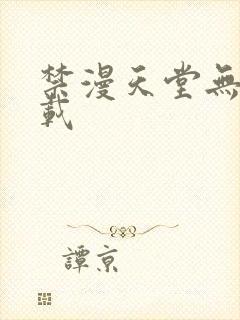 禁漫天堂無
載
譚京